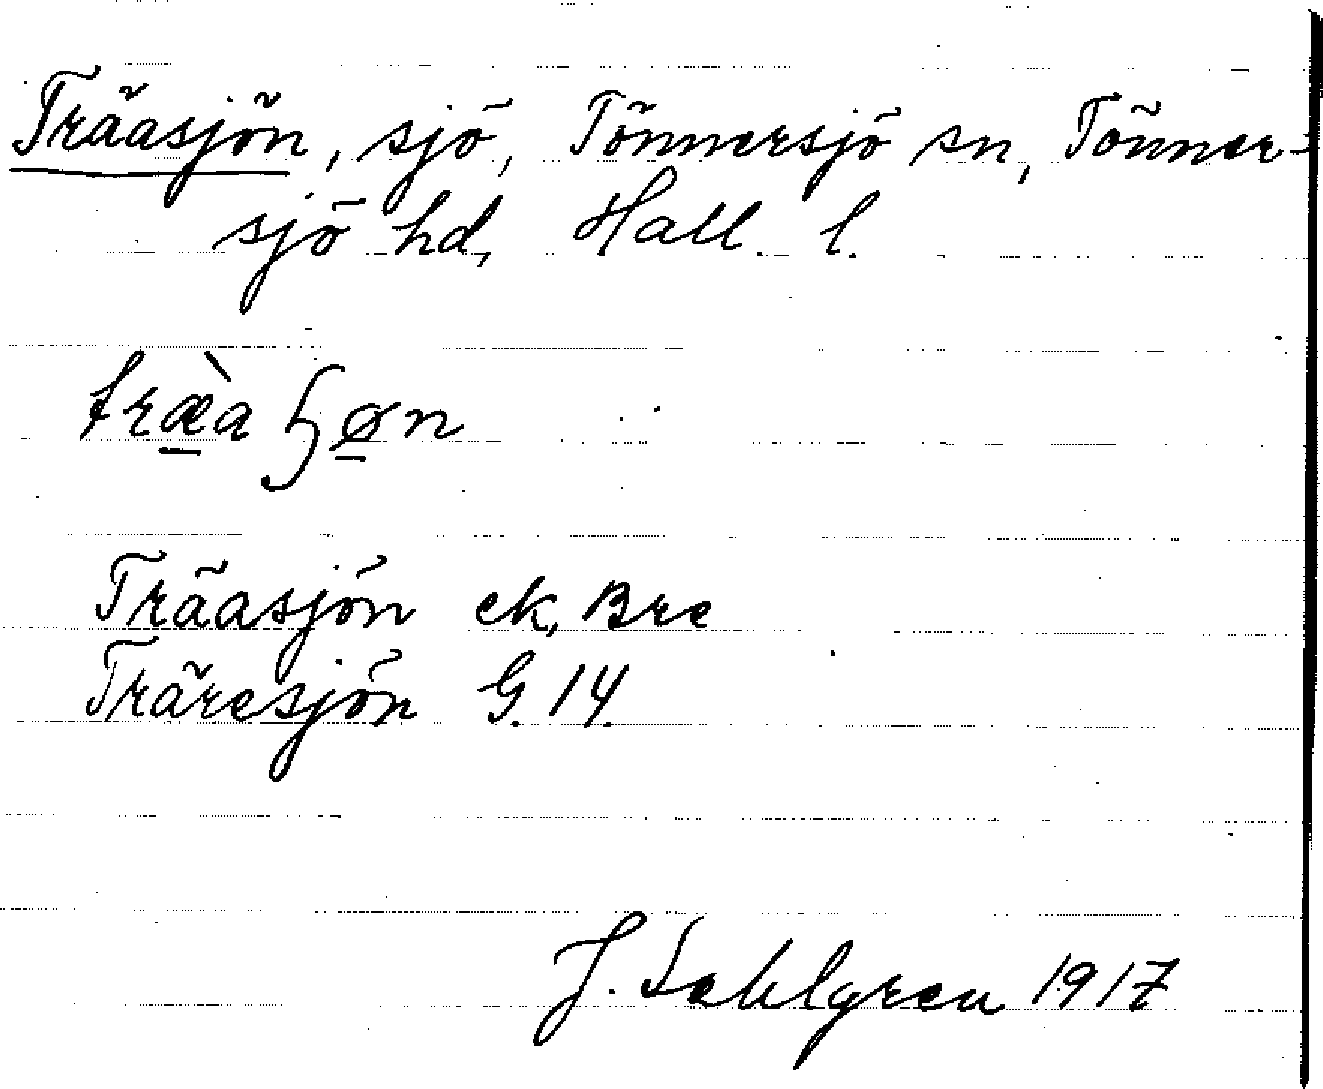 Träasjön, sjö, Tönnersjö sn, Tönner-
sjö hd, Hall. l.
træ̀a ɧøn
Träasjön ek, Bre
Träresjön G. 14.
J. Sahlgren 1917